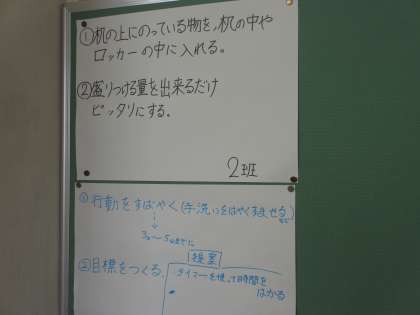 ①机の上にのっている物を、机の中や
ロッカーの中に入れる。
②盛りつける量を出来るだけ
ピッタリにする。
2班
①行動をすばやく(手洗いをはやくすませる)
3分〜5分までに
提案
②目標をつくる。
タイマーを使って時間を
はかる